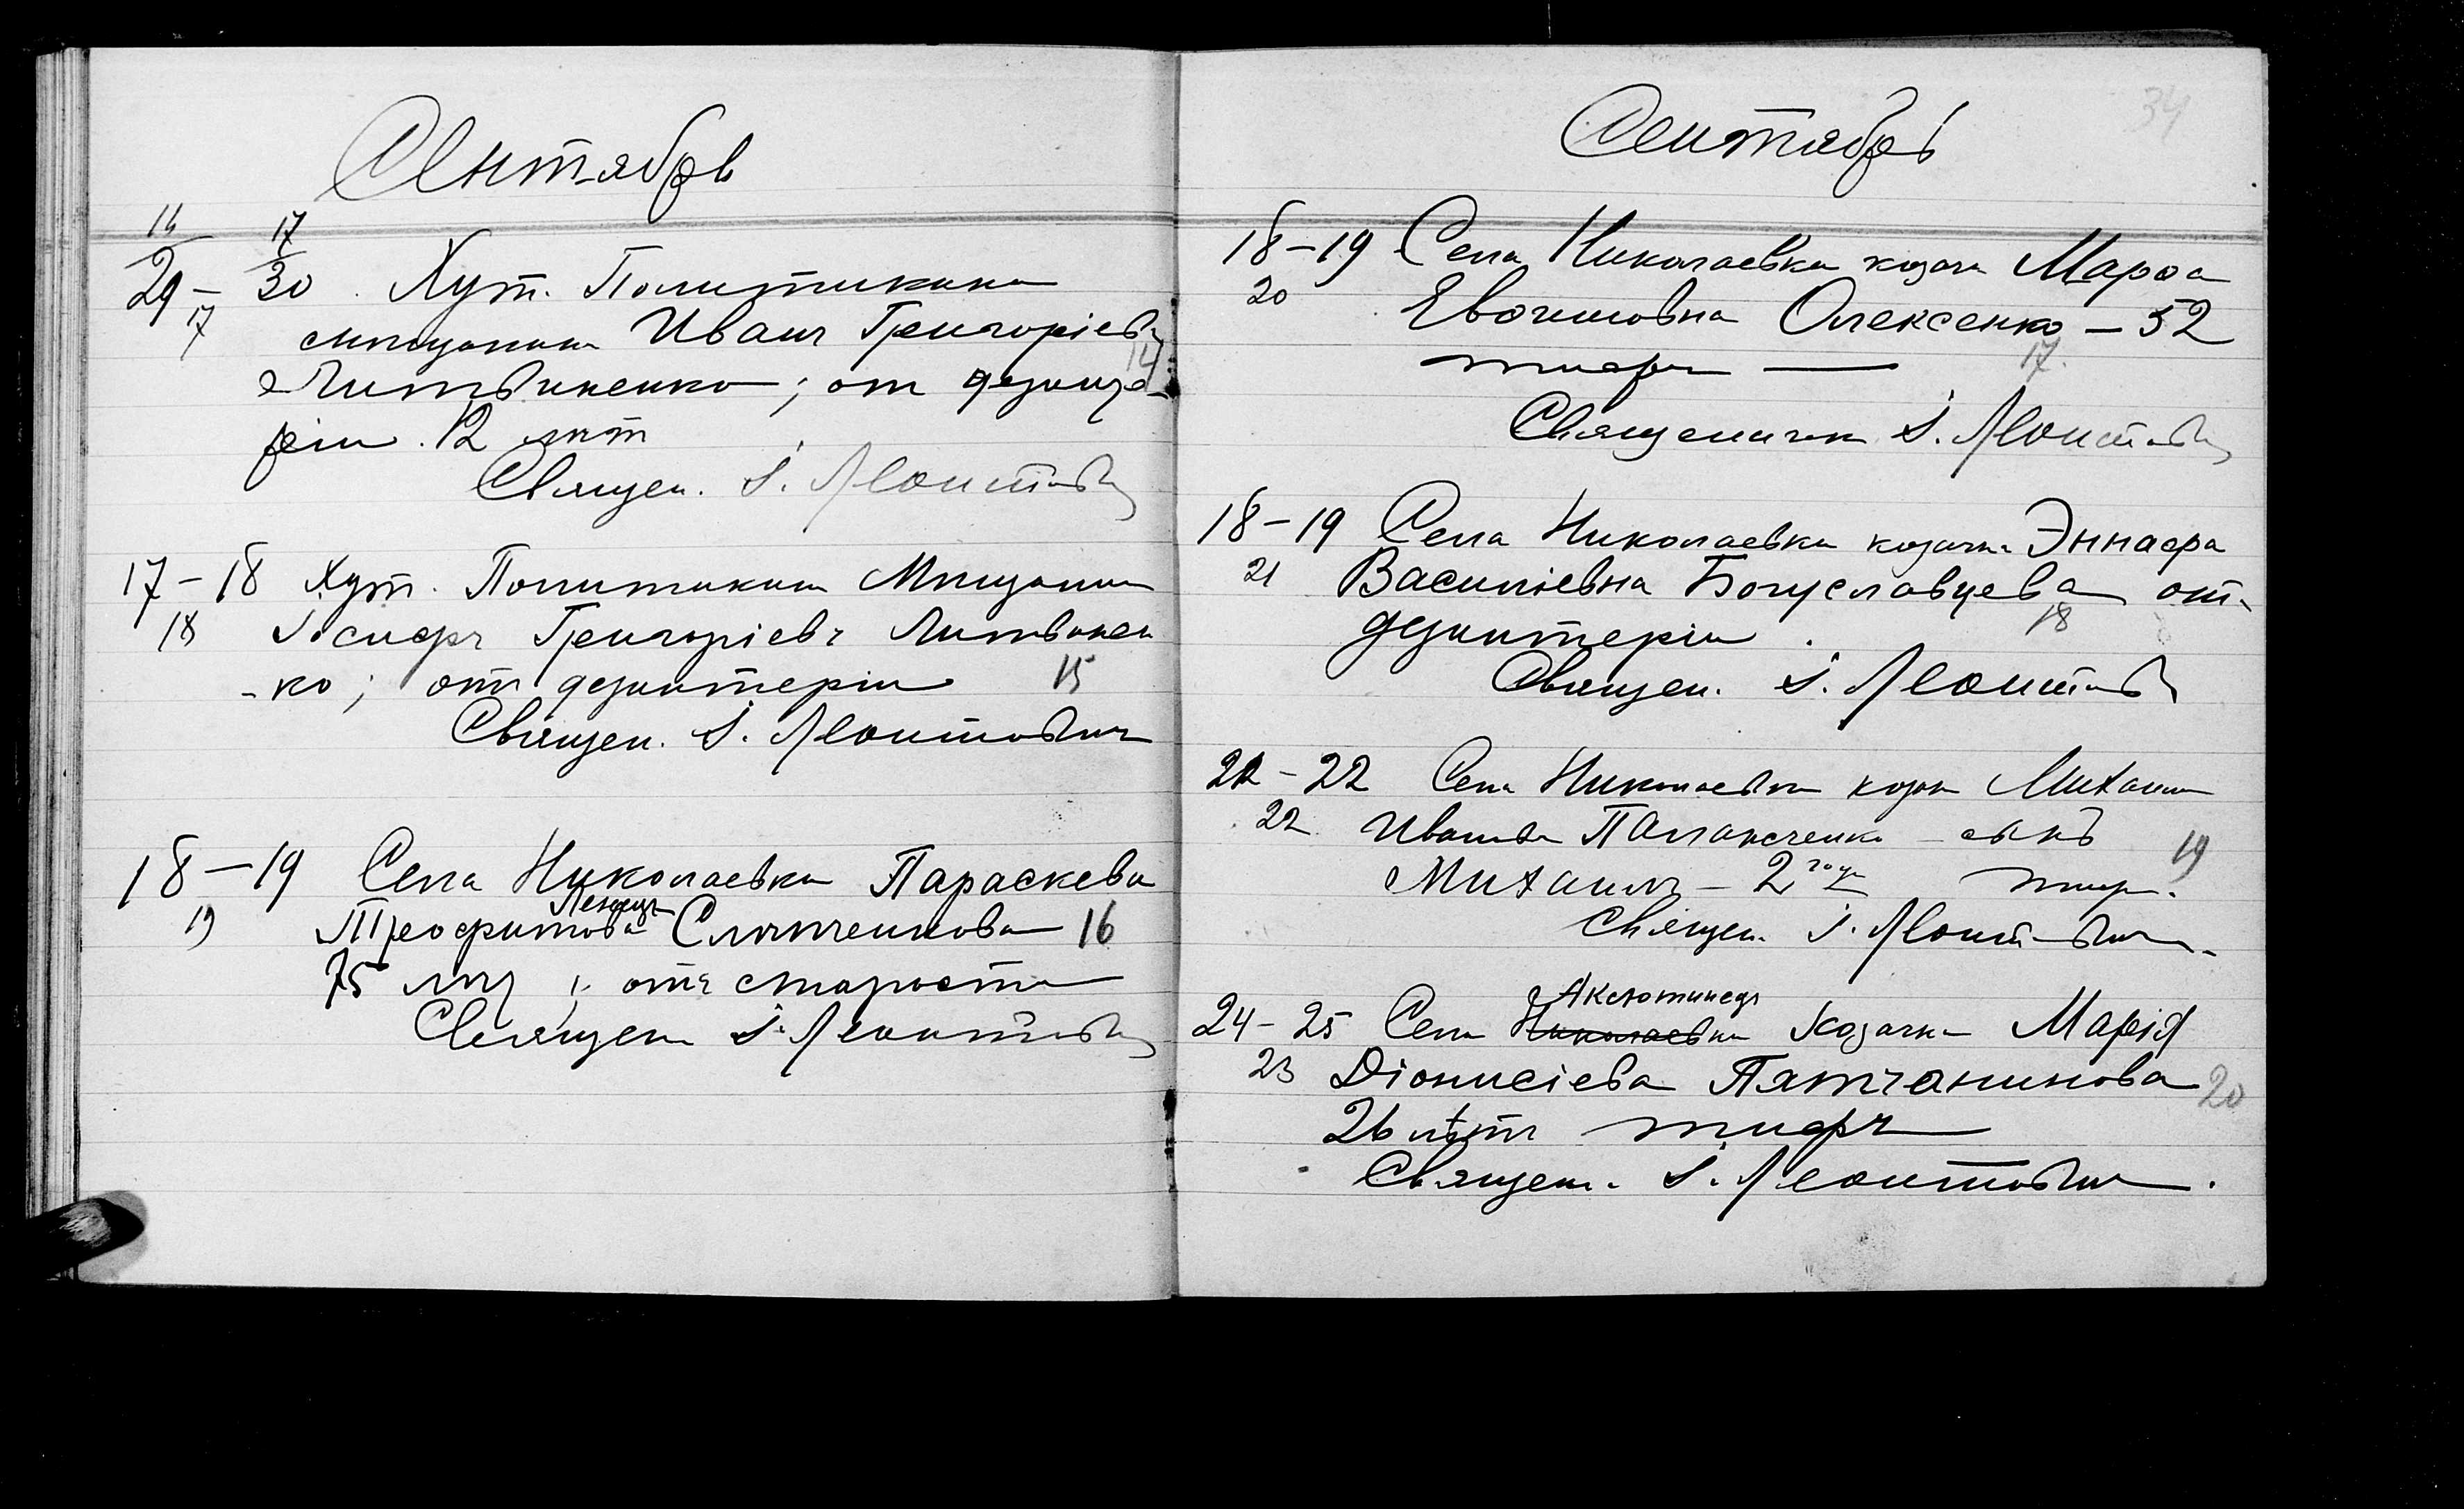 Сентябрь
16 17
29 – 30 Хут. Политикина
17 мѣщанин Иванъ Григоріевъ
14
Литвиненко; от дезинте-
ріи. 12 лѣт
Священ. І. Леонтович
17 – 18 Хут. Политикин Мѣщанин
18 Іосифъ Григоріевъ Литвинен
-ко; отъ дезинтеріи 15
Священ. І. Леонтовичъ
18 – 19 Села Николаевки Параскева
19 Трофимова Слипченкова 16
75 лѣт; отъ старости
Священ І. Леонтович
Сентябрь
34
18 – 19 Села Николаевки козачк Марфа
20 Евфимовна Олексенко – 52
тифъ — 17.
Священник І. Леонтович
18 – 19 Села Николаевки козачк. Эннафа
21 Василіевна Богуславцева от
дезинтеріи. 18
Священ. І. Леонтович
22 – 22 Села Николаевки козак Михаил
22 Иванов – сынъ
19
Михаилъ – 2 года тиф.
Священ. І. Леонтович
Аксютинецъ
24 – 25 Села Николаевки Козачка Марія
23 Діонисіева Пятчанинова
20
26 лѣтъ тифъ
Священ. І. Леонтович.